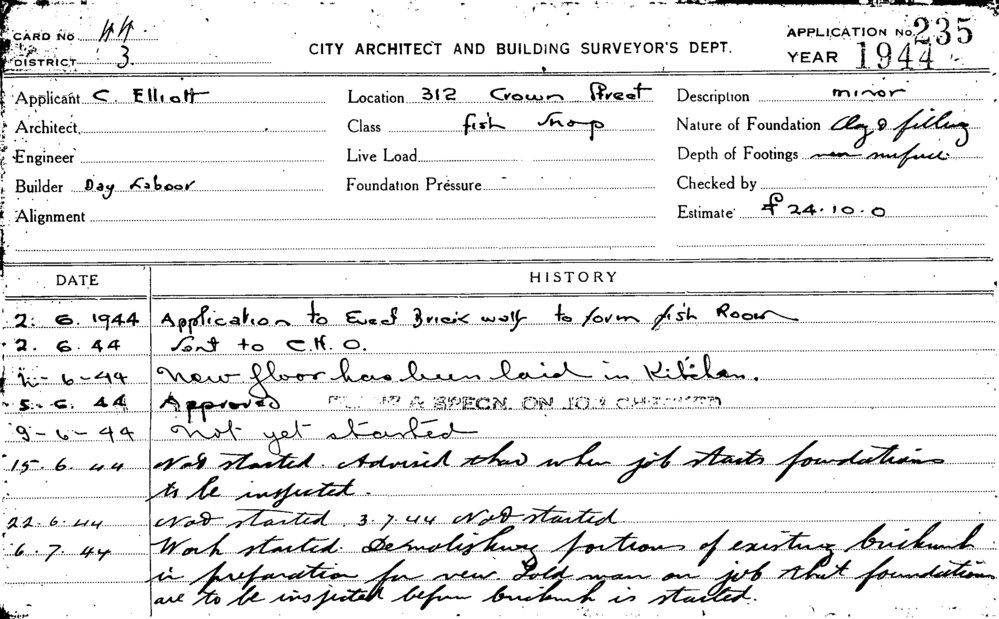 CARD NO 44.
DISTRICT 3
CITY ARCHITECT AND BUILDING SURVEYOR'S DEPT.
APPLICATION No. 235
YEAR 1944
Applicant C. Elliott
Architect
Engineer
Builder Day Labour
Alignment
Location 312 Crown Street
Class fish shop
Live Load
Foundation Pressure
Description minor
Nature of Foundation Clay & filling
Depth of Footings near surface
Checked by
Estimate £24.10.0
DATE HISTORY
2. 6. 1944 Application to Erect Brick wall to form fish Room
2. 6. 44 Sent to C.H.O.
2-6-44 New floor has been laid in Kitchen.
5-6. 44 Approved PLANS & SPECN. ON JOB CHECKED
9-6-44 Not yet started
15. 6. 44 Not started. Advised that when job starts foundations
to be inspected.
22. 6. 44 Not started 3.7.44 Not started
6. 7. 44 Work started. Demolishing portions of existing brickwork
in preparation for new. Told man on job that foundations
are to be inspected before brickwork is started.